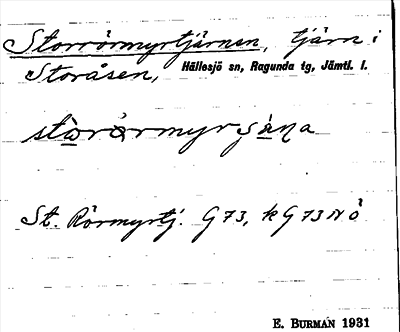 Storrörmyrtjärnen, tjärn i
Storåsen, Hällesjö sn, Ragunda tg, Jämtl. l.
St. Rörmyrtj. G 73, kG 73 NÖ
E. BURMAN 1931